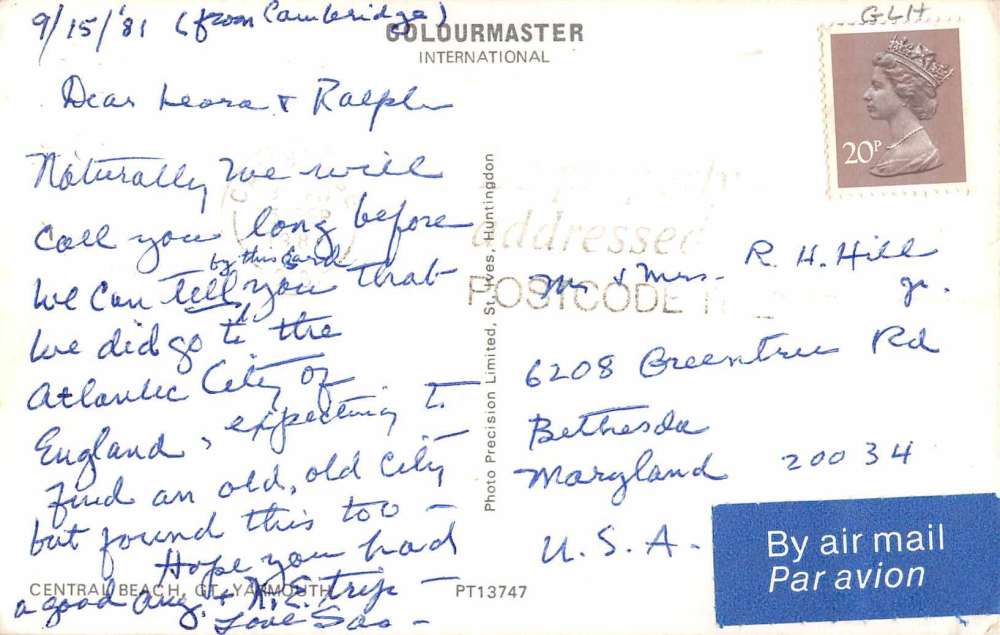 9/15/'81 (from Cambridge)
COLOURMASTER
INTERNATIONAL
GLH
20P
Dear Leora & Ralph
Naturally we will
call you long before
by this card
we can tell you that
we did go to the
Atlantic City of
England, expecting to
find an old, old city
but found this too –
Hope you had
a good Aug. & N.E. trip –
Love
Photo Precision Limited, St. Ives, Huntingdon
addressed
POSTCODE
Mr & Mrs. R. H. Hill
Jr.
6208 Greentree Rd
Bethesda
Maryland 20034
U.S.A.
By air mail
Par avion
CENTRAL BEACH, GT. YARMOUTH
PT13747